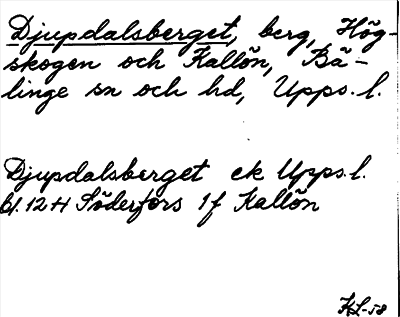 Djupdalsberget, berg, Hög-
skogen och Kallön, Bä-
linge sn och hd, Upps. l.
Djupdalsberget ek Upps. l.
bl. 12 H Söderfors 1f Kallön
KL-58